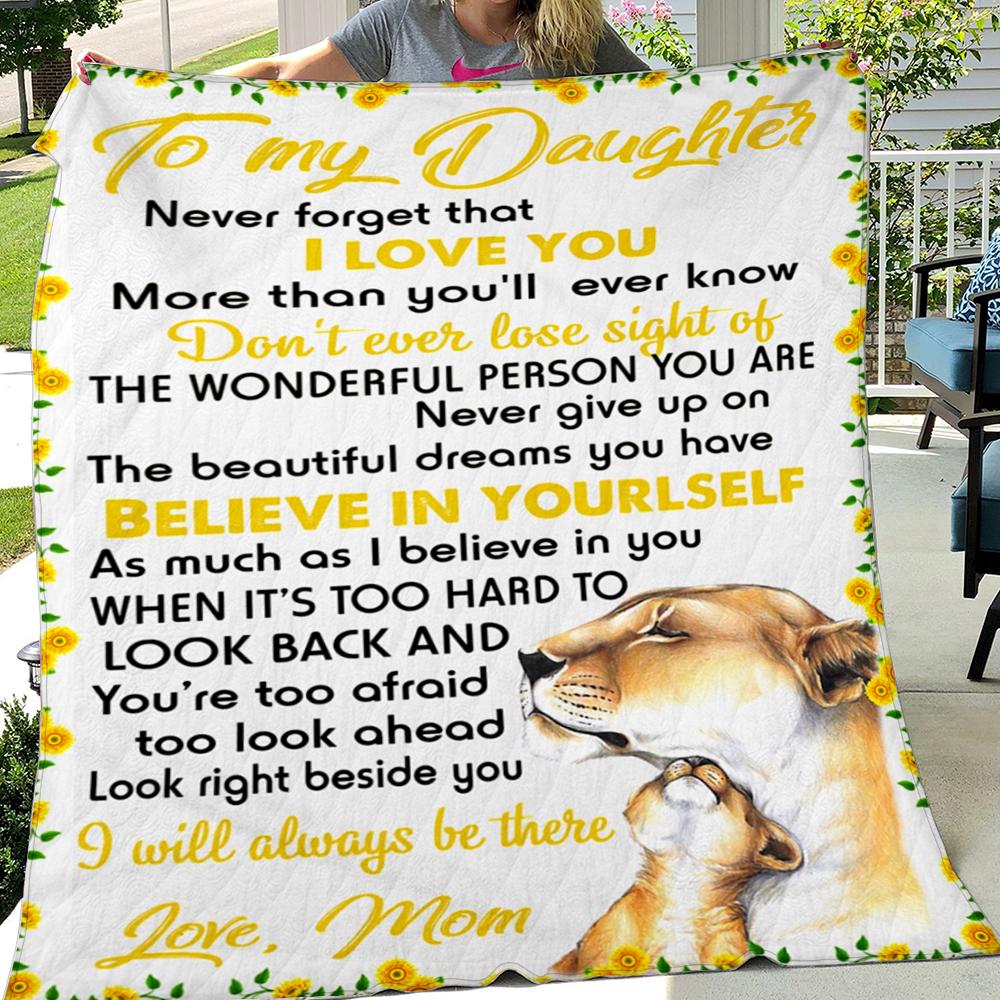 To my Daughter
Never forget that
I LOVE YOU
More than you'll ever know
Don't ever lose sight of
THE WONDERFUL PERSON YOU ARE
Never give up on
The beautiful dreams you have
BELIEVE IN YOURLSELF
As much as I believe in you
WHEN IT'S TOO HARD TO
LOOK BACK AND
You're too afraid
too look ahead
Look right beside you
I will always be there
Love, Mom